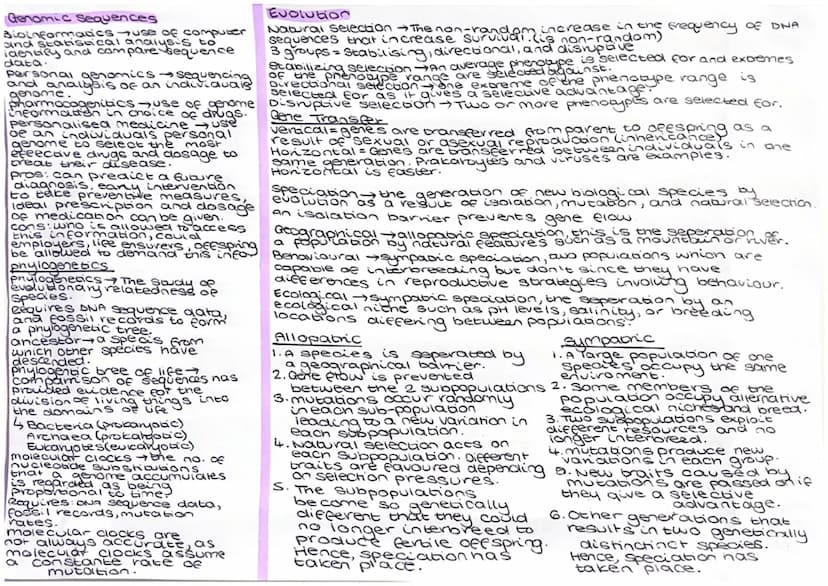 Genomic Sequences
Bioinformatics → use of computer
and statistical analysis to
identify and compare sequence
data.
Personal genomics → sequencing
and analysis of an individuals
genome.
pharmacogenitics → use of genome
information in choice of drugs.
personalised medicine → use
of an individuals personal
genome to select the most
effective drugs and dosage to
treat their disease.
Pros: can predict a future
diagnosis, early intervention
to take preventive measures,
ideal prescription and dosage
of medication can be given.
cons: who is allowed to access
this information, could
employers, life ensurers, offspring
be allowed to demand this info
phylogenetics
Phylogenetics → The study of
evolutionary relatedness of
species.
Requires DNA sequence data
and fossil records to form
a phylogenetic tree.
ancestor → a species from
which other species have
descended.
phylogenic tree of life →
comparison of sequences has
provided evidence for the
division of living things into
the domains of life
↳ Bacteria (prokaryotic)
Archaea (prokaryotic)
Eucaryotes (eukaryotic)
molecular clocks → the no. of
nucleotide substitutions
that a genome accumulates
is regarded as being
proportional to time.
Requires: DNA sequence data,
fossil records, mutation
rates.
molecular clocks are
not always accurate, as
molecular clocks assume
a constante rate of
mutation.
Evolution
Natural selection → The non-random increase in the frequency of DNA
sequences that increase survival. (is non-random)
3 groups = stabilising, directional, and disruptive
Stabilizing selection → An average phenotype is selected for and extremes
of the phenotype range are selected against.
Directional selection → one extreme of the phenotype range is
selected for as it gives a selective advantage.
Disruptive selection → Two or more phenotypes are selected for.
Gene Transfer
Vertical = genes are transferred from parent to offspring as a
result of sexual or asexual reproduction (inheritance)
Horizontal = Genes are transferred between individuals in the
same generation. Prokaroytes and viruses are examples.
Horizontal is faster.
Speciation → the generation of new biological species by
evolution as a result of isolation, mutation, and natural selection.
An isolation barrier prevents gene flow.
Geographical → allopatric speciation, this is the seperation of
a population by natural features such as a mountain or river.
Behavioural → sympatric speciation, two populations which are
capable of interbreeding but don't since they have
differences in reproductive strategies involving behaviour.
Ecological → sympatric speciation, the seperation by an
ecological niche such as pH levels, salinity, or breeding
locations differing between populations.
Allopatric
1. A species is seperated by
a geographical barrier.
2. Gene flow is prevented
between the 2 subpopulations
3. mutations occur randomly
in each sub-population
leading to a new variation in
each subpopulation.
4. Natural selection acts on
each subpopulation. Different
traits are favoured depending
on selection pressures.
5. The subpopulations
become so genetically
different that they could
no longer interbreed to
produce fertile offspring.
Hence, speciation has
taken place.
Sympatric
1. A large population of one
species occupy the same
enviroment.
2. Some members of the
population occupy alternative
ecological niches and breed.
3. Two subpopulations exploit
different resources and no
longer interbreed.
4. mutations produce new
variations in each group.
5. New traits caused by
mutations are passed on if
they give a selective
advantage.
6. Other generations that
results in two genetically
distinctinct species.
Hence, speciation has
taken place.